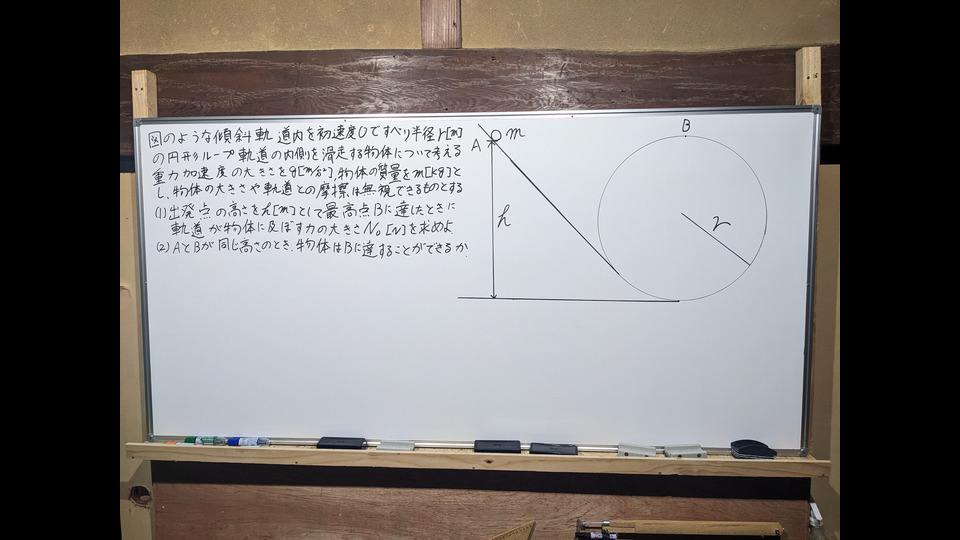 図のような傾斜軌道内を初速度0ですべり半径r[m]
の円形ループ軌道の内側を滑走する物体について考える
重力加速度の大きさをg[m/s²],物体の質量をm[kg]と
し、物体の大きさや軌道との摩擦は無視できるものとする
(1)出発点の高さをh[m]として最高点Bに達したときに
軌道が物体に及ぼす力の大きさN₀[N]を求めよ
(2)AとBが同じ高さのとき、物体はBに達することができるか.
m
A
h
B
r